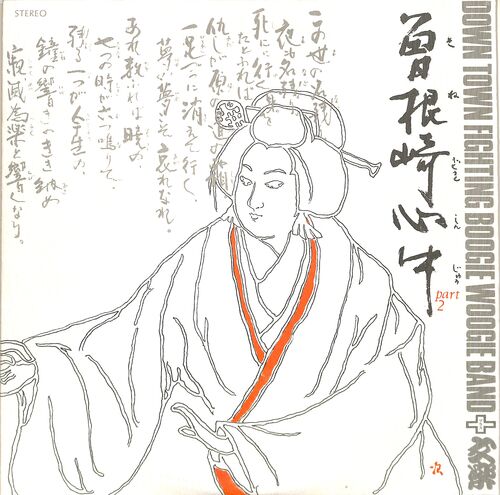 STEREO
曽根崎心中
そねざきしんじゅう
part 2
DOWN TOWN FIGHTING BOOGIE WOOGIE BAND + 文楽
この世の名残
夜も名残
死に行く身を
たとふれば
あだしが原の道の霜
一足づつに消えて行く
夢の夢こそ哀れなれ。
あれ数ふれば暁の
七つの時が六つ鳴りて
残る一つが今生の
鐘の響きのきき納め
寂滅為楽と響くなり。